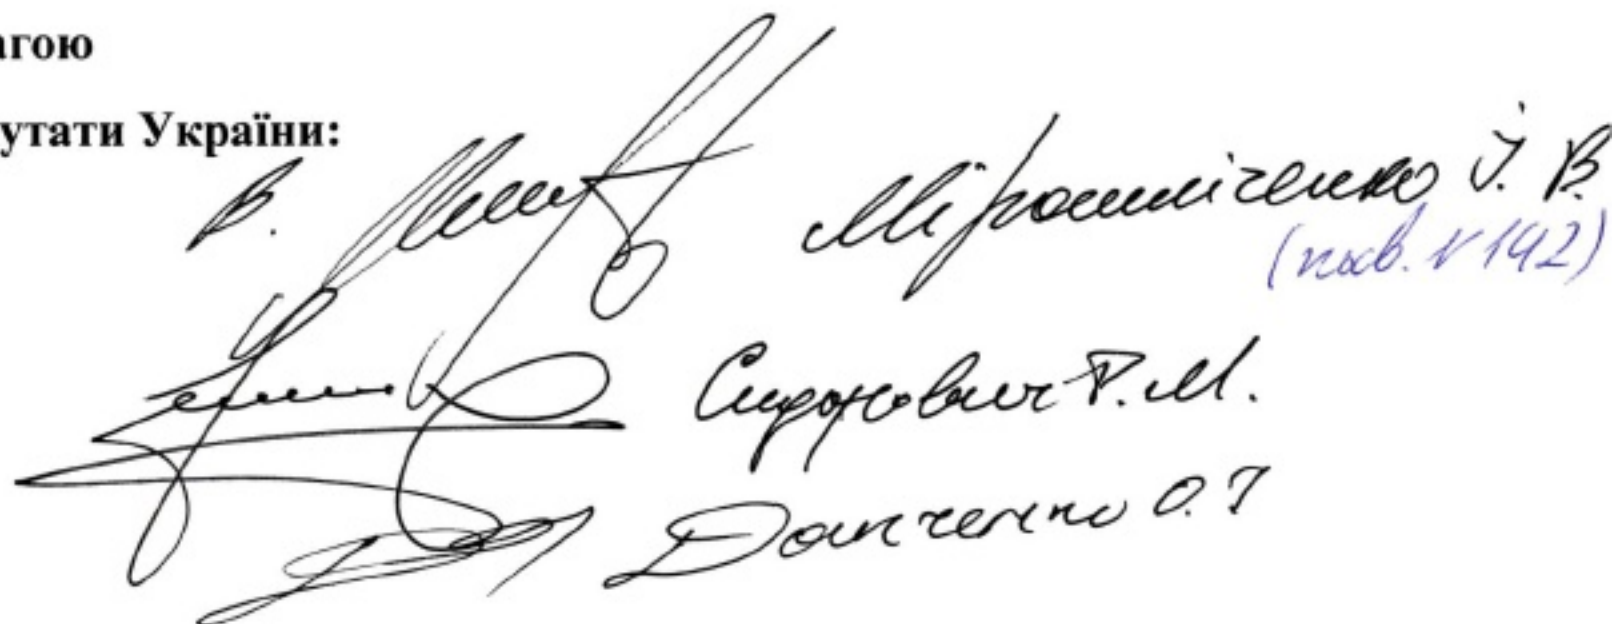 агою
утати України:
Мірошніченко І. В.
(посв. № 142)
Сидорович Р. М.
Данченко О. І